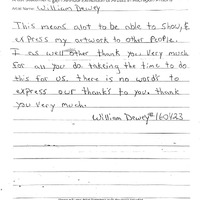 Artist Name: William Dewey
This means alot to be able to show, &
express my artwork to other People.
I as well other thank you Very much
for all you do. takeing the time to do
this for us. there is no words to
express our thanks to you. thank
you Very much.
William Dewey # 160423